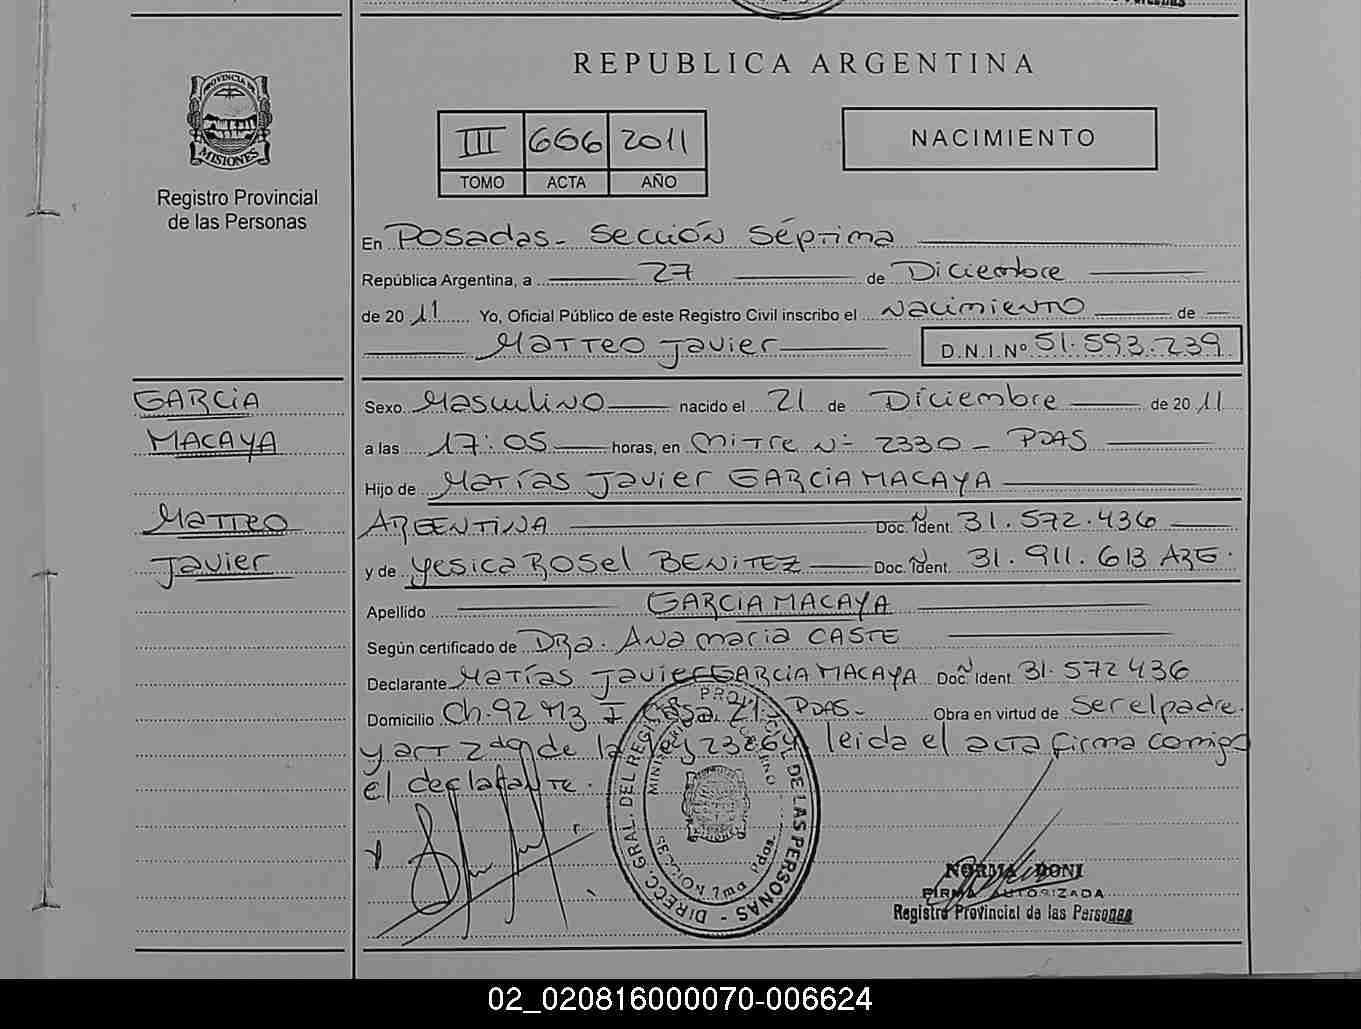 REPUBLICA ARGENTINA
PROVINCIA DE
MISIONES
Registro Provincial
de las Personas
III 666 2011
TOMO ACTA AÑO
NACIMIENTO
En Posadas - Sección Séptima
República Argentina, a 27 de Diciembre
de 2011 Yo, Oficial Público de este Registro Civil inscribo el Nacimiento de
Matteo Javier D.N.I.Nº 51.593.239
GARCIA
MACAYA
Matteo
Javier
Sexo Masculino nacido el 21 de Diciembre de 2011
a las 17:05 horas, en Mitre Nº 2330 - PDAS
Hijo de Matías Javier GARCIA MACAYA
ARGENTINA Doc. Nº Ident. 31.572.436
y de Yesica Rosel BENITEZ Doc. Nº Ident. 31.911.613 ARG.
Apellido GARCIA MACAYA
Según certificado de DRA. Ana Maria CASTE
Declarante Matías Javier GARCIA MACAYA Doc. Nº Ident. 31.572436
Domicilio Ch. 92 Mz I Casa 21 PDAS - Obra en virtud de Ser el padre
y art 2do de la ley 23264, leida el acta firma conmigo
el declarante.
DIRECC. GRAL. DEL REGISTRO PROVINCIAL DE LAS PERSONAS
MISIONES
7ma Pdas.
NORMA DONI
FIRMA AUTORIZADA
Registro Provincial de las Personas
02_020816000070-006624